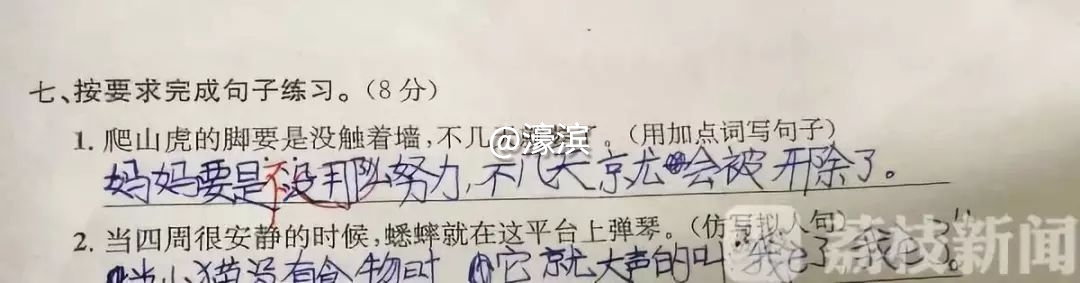 七、按要求完成句子练习。(8分)
1. 爬山虎的脚要是没触着墙,不几 了。(用加点词写句子)
@濠滨
妈妈要是不没那么努力,不几天就会被开除了。
2. 当四周很安静的时候,蟋蟀就在这平台上弹琴。(仿写拟人句)
当小猫没有食物时 它就大声的叫“我饿了 我饿了”
荔枝新闻